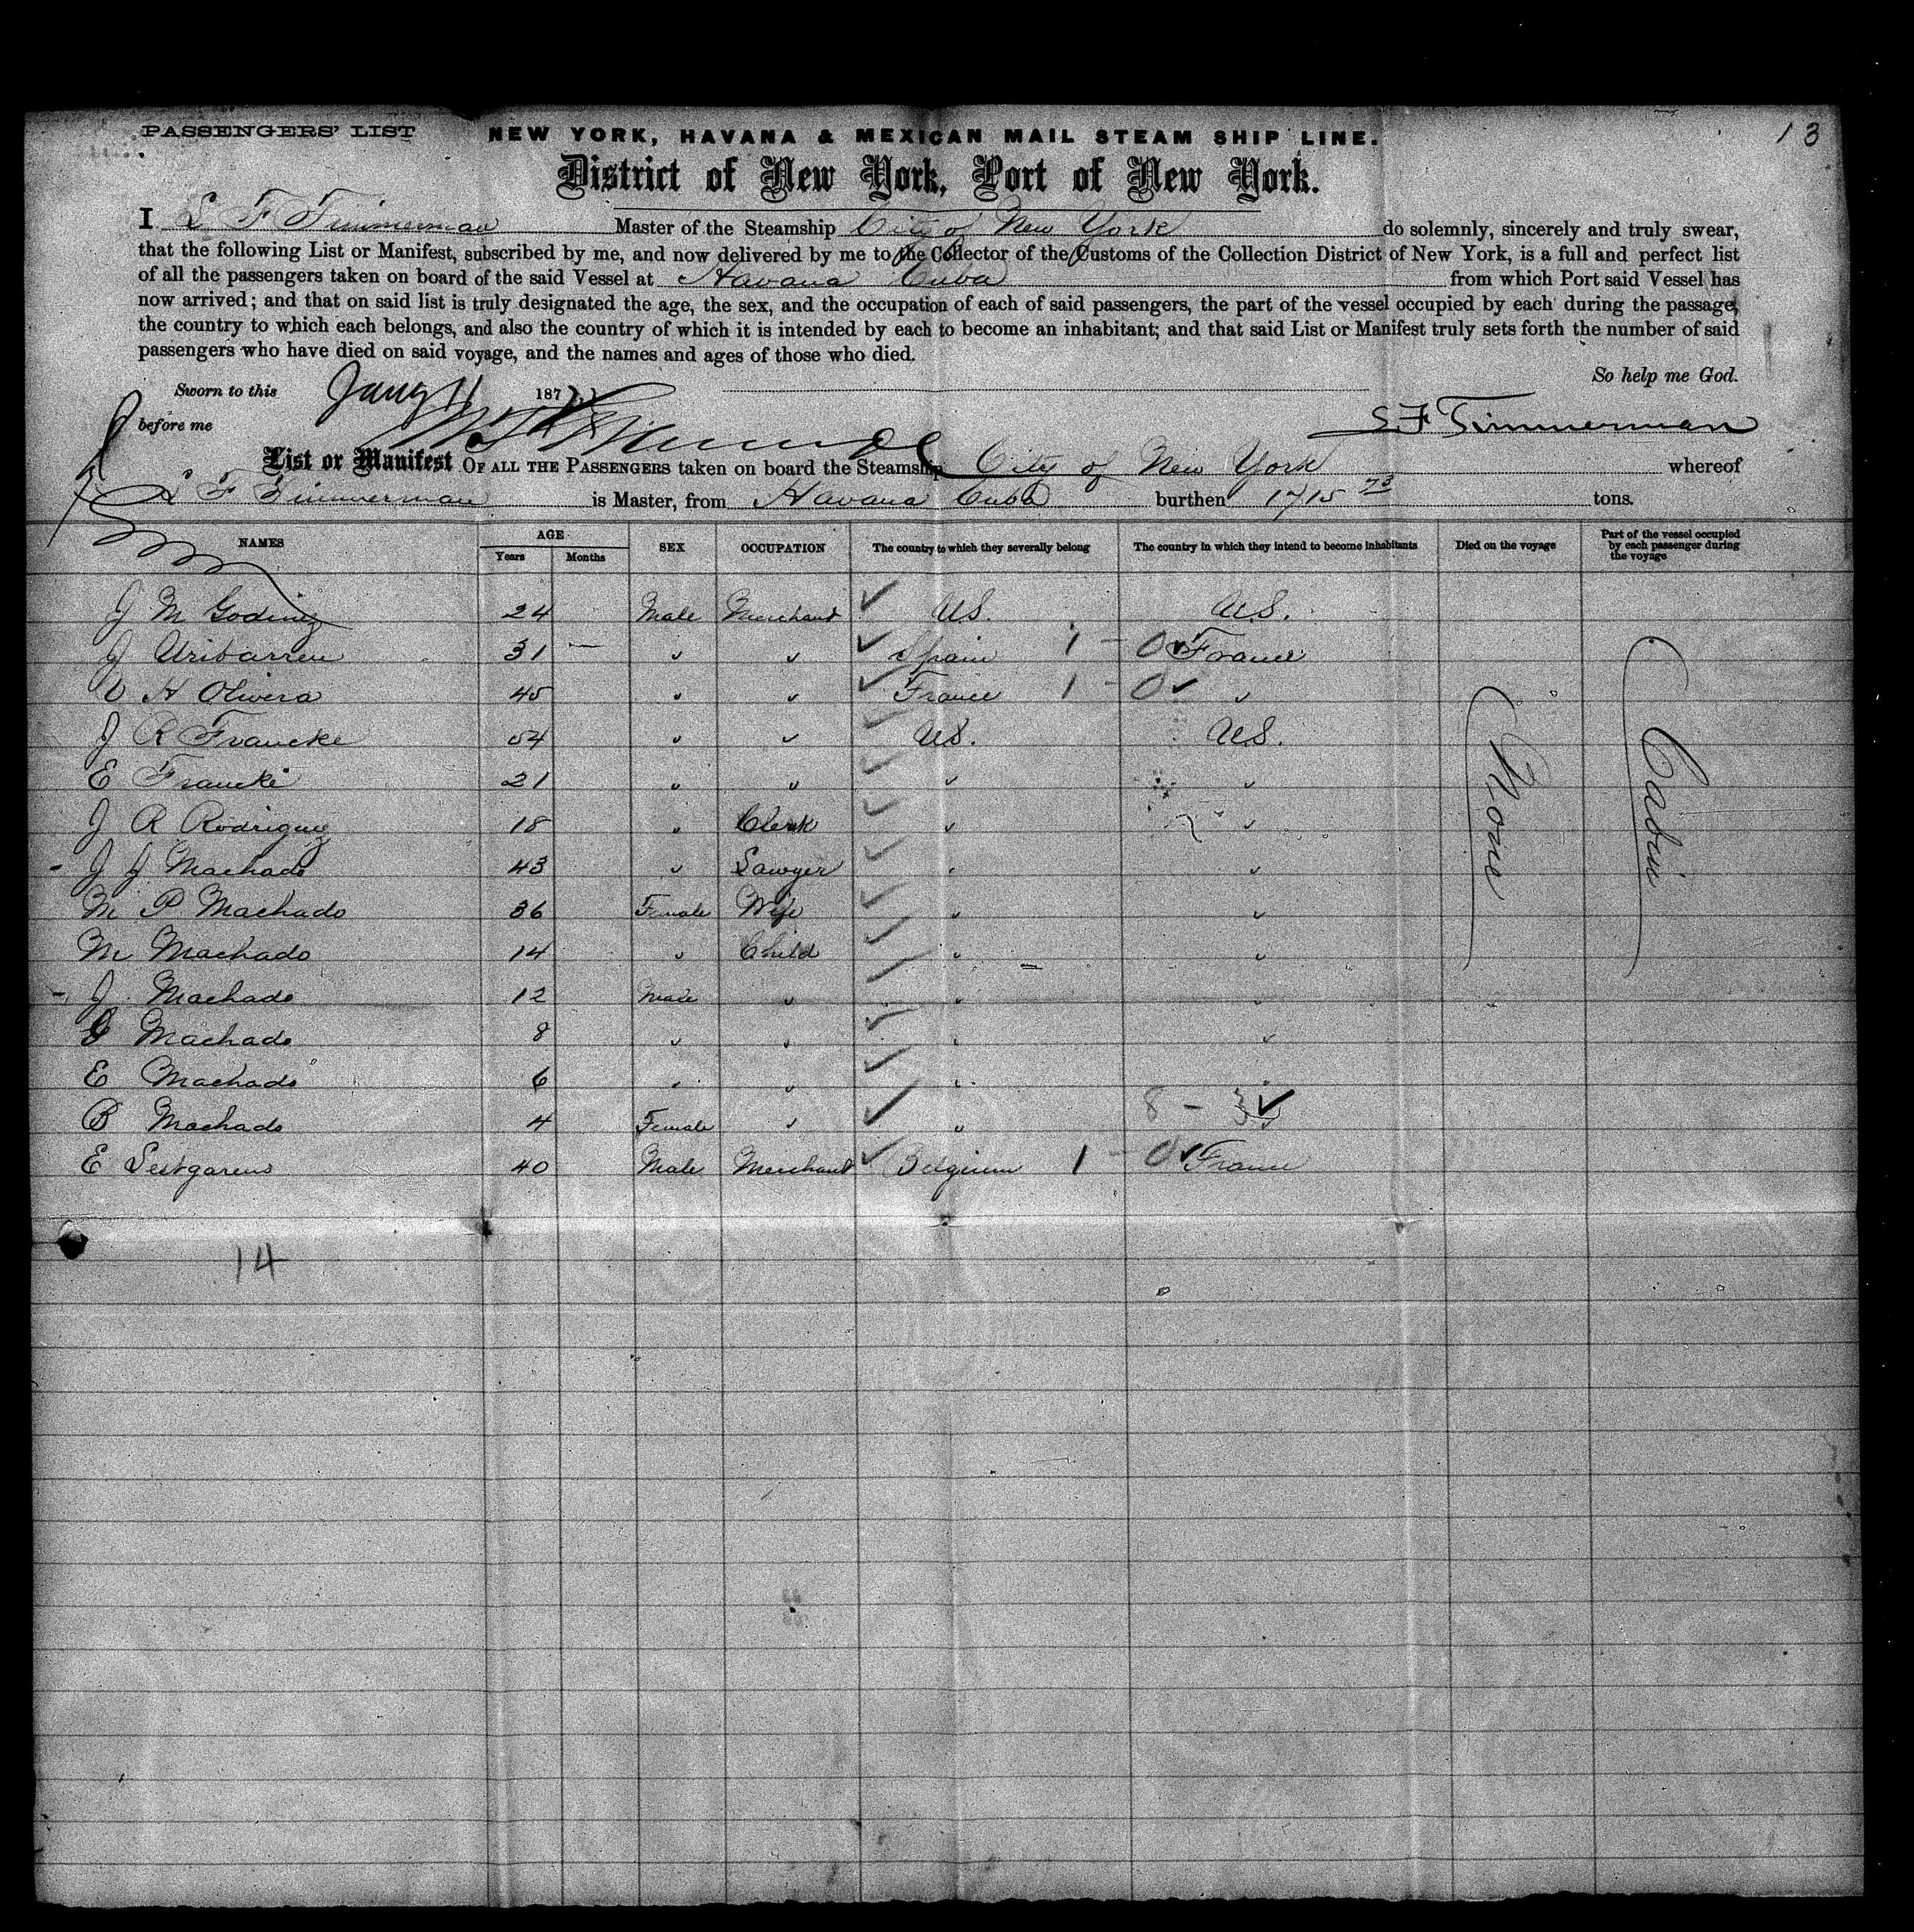 PASSENGERS' LIST NEW YORK, HAVANA & MEXICAN MAIL STEAM SHIP LINE. 13
District of New York, Port of New York.
I S F Timmerman Master of the Steamship City of New York do solemnly, sincerely and truly swear,
that the following List or Manifest, subscribed by me, and now delivered by me to the Collector of the Customs of the Collection District of New York, is a full and perfect list
of all the passengers taken on board of the said Vessel at Havana Cuba from which Port said Vessel has
now arrived; and that on said list is truly designated the age, the sex, and the occupation of each of said passengers, the part of the vessel occupied by each during the passage,
the country to which each belongs, and also the country of which it is intended by each to become an inhabitant; and that said List or Manifest truly sets forth the number of said
passengers who have died on said voyage, and the names and ages of those who died.
So help me God.
Sworn to this Jany 11 187
before me S. F Timmerman
List or Manifest OF ALL THE PASSENGERS taken on board the Steamship City of New York whereof
S F Timmerman is Master, from Havana Cuba burthen 1715 73 tons.
NAMES AGE Years Months SEX OCCUPATION The country to which they severally belong The country in which they intend to become inhabitants Died on the voyage Part of the vessel occupied by each passenger during the voyage
J M Goding 24 Male Merchant ✓ U.S. U.S.
J Uribarren 31 — " " ✓ Spain 1 - 0 ✓ France
H Olivera 45 " " ✓ France 1 - 0 ✓ "
J R Francke 54 " " ✓ U.S. U.S.
E Francke 21 " " ✓ " "
J R Rodriguez 18 " Clerk ✓ " "
- J J Machado 43 " Sawyer ✓ " "
M P Machado 36 Female Wife ✓ " "
M Machado 14 " Child ✓ " "
- J. Machado 12 Male " ✓ " "
Machado 8 " " ✓ " "
E Machado 6 " " ✓ " "
B Machado 4 Female " ✓ " 8 - 3 ✓
E 40 Male Merchant ✓ Belgium 1 - 0 ✓ France
None
Cabin
14